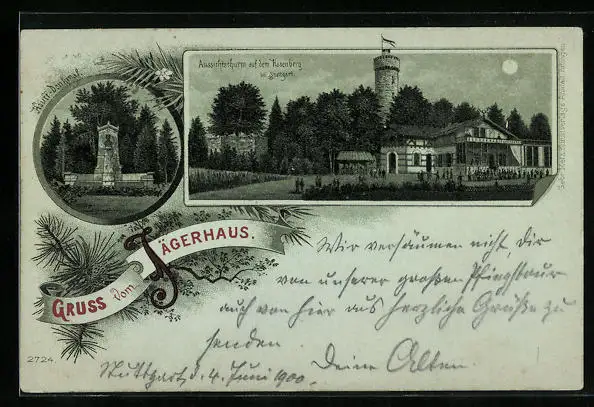 Hauff-Denkmal.
Aussichtsthurm auf dem Hasenberg
bei Stuttgart.
GRUSS vom JÄGERHAUS.
Wir versäumen nicht, Dir
von unserer großen Pfingsttour
auch von hier aus herzliche Grüße zu
senden. Deine Alten.
Stuttgart, d. 4. Juni 1900.
2724